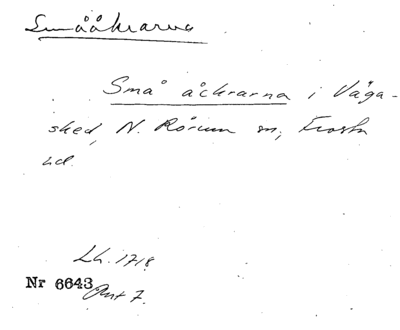 Smååkrarna
Små åckrarna i Våga-
sked, N. Rörum sn, Frosta
hd.
Lh. 1718
Nr 6643 Ant 7.